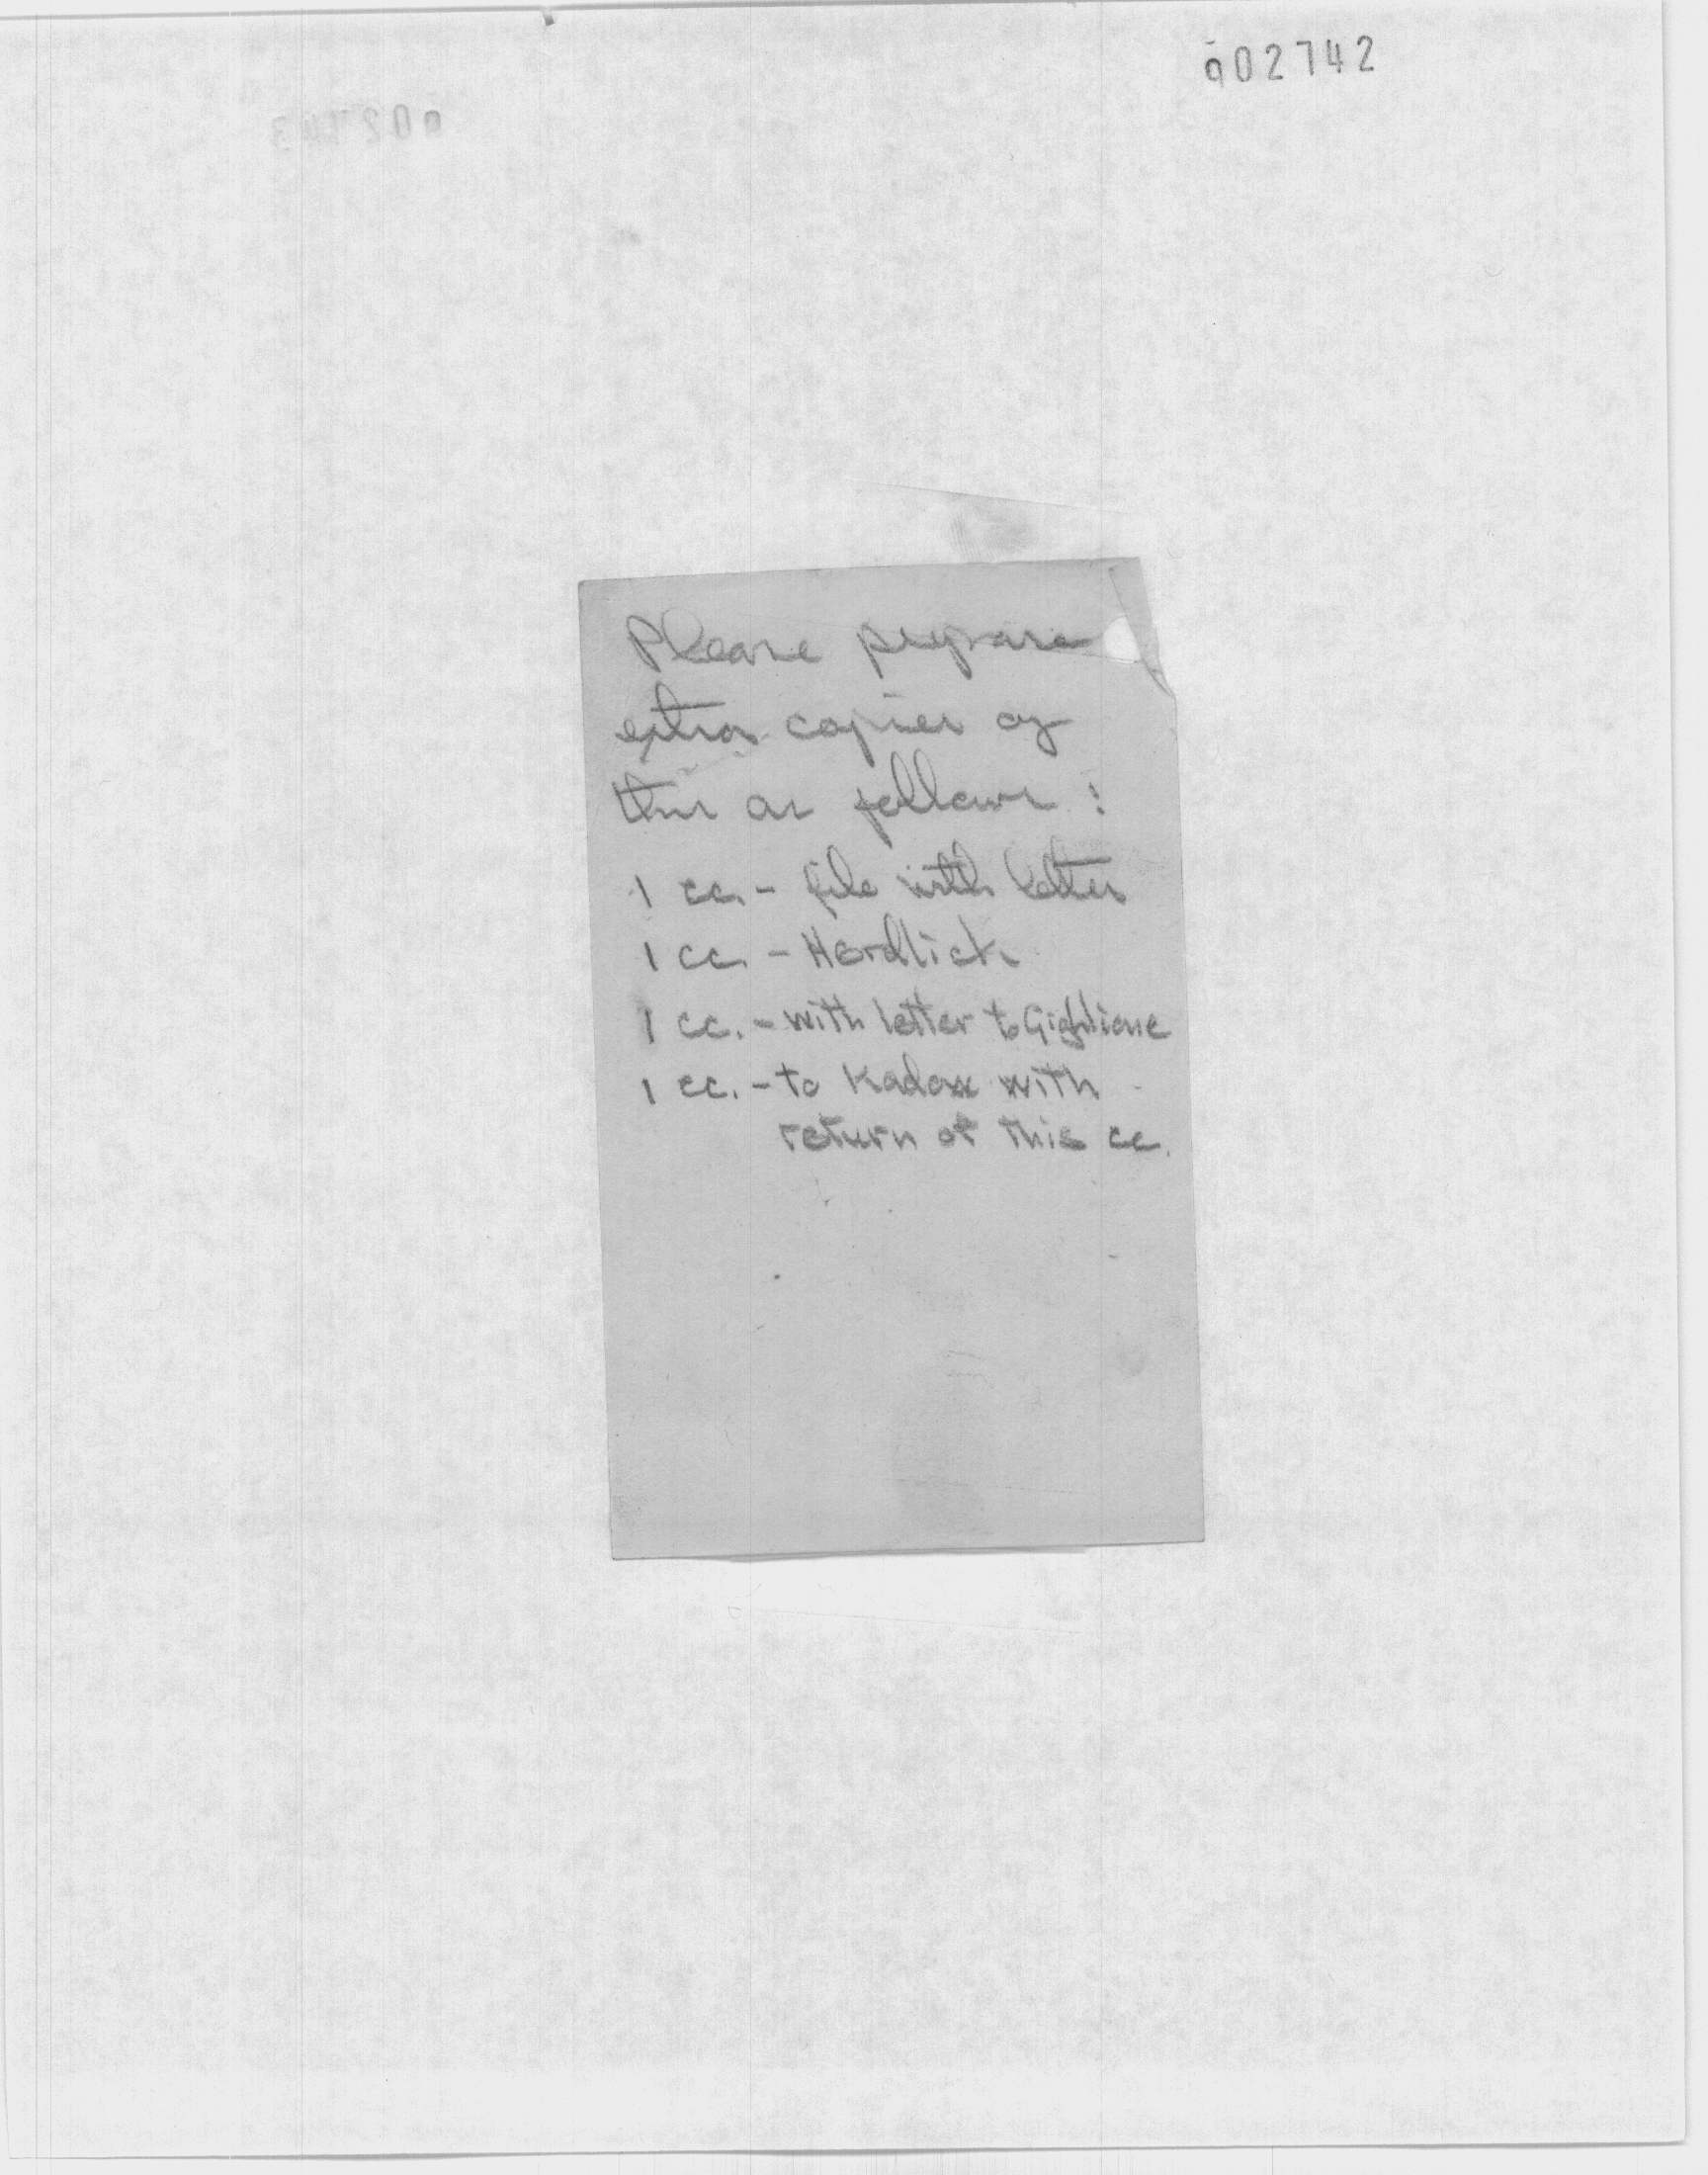 002742
Please prepare
extra copies of
this as follows:
1 cc. - file with letter
1 cc. - Herdlick
1 cc. - with letter to Giglione
1 cc. - to Kadow with
return of this cc.